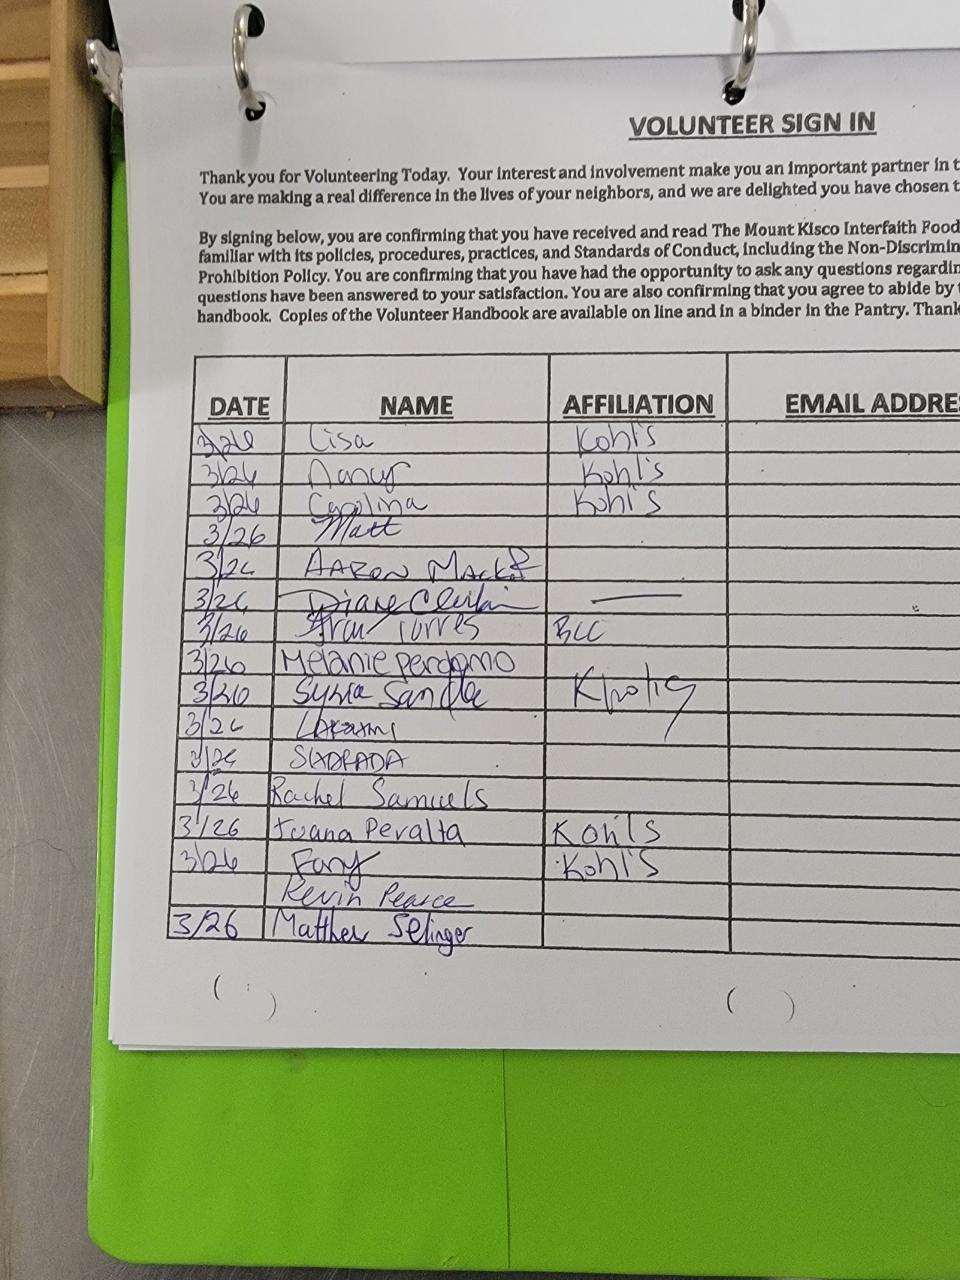 VOLUNTEER SIGN IN
Thank you for Volunteering Today. Your interest and involvement make you an important partner in t
You are making a real difference in the lives of your neighbors, and we are delighted you have chosen t
By signing below, you are confirming that you have received and read The Mount Kisco Interfaith Food
familiar with its policies, procedures, practices, and Standards of Conduct, including the Non-Discrimin
Prohibition Policy. You are confirming that you have had the opportunity to ask any questions regardin
questions have been answered to your satisfaction. You are also confirming that you agree to abide by
handbook. Copies of the Volunteer Handbook are available on line and in a binder in the Pantry. Thank
DATE NAME AFFILIATION EMAIL ADDRE
3/26 Lisa Kohl's
3/26 Nancy Kohl's
3/26 Carolina Kohl's
3/26 Matt
3/26 AARON
3/26 Diane
3/26 Torres BCC
3/26 Melanie perdomo
3/26
3/26
3/26
3/26 Rachel Samuels
3/26 Juana Peralta Kohl's
3/26 Fany Kohl's
Kevin Pearce
3/26 Matthew Selinger